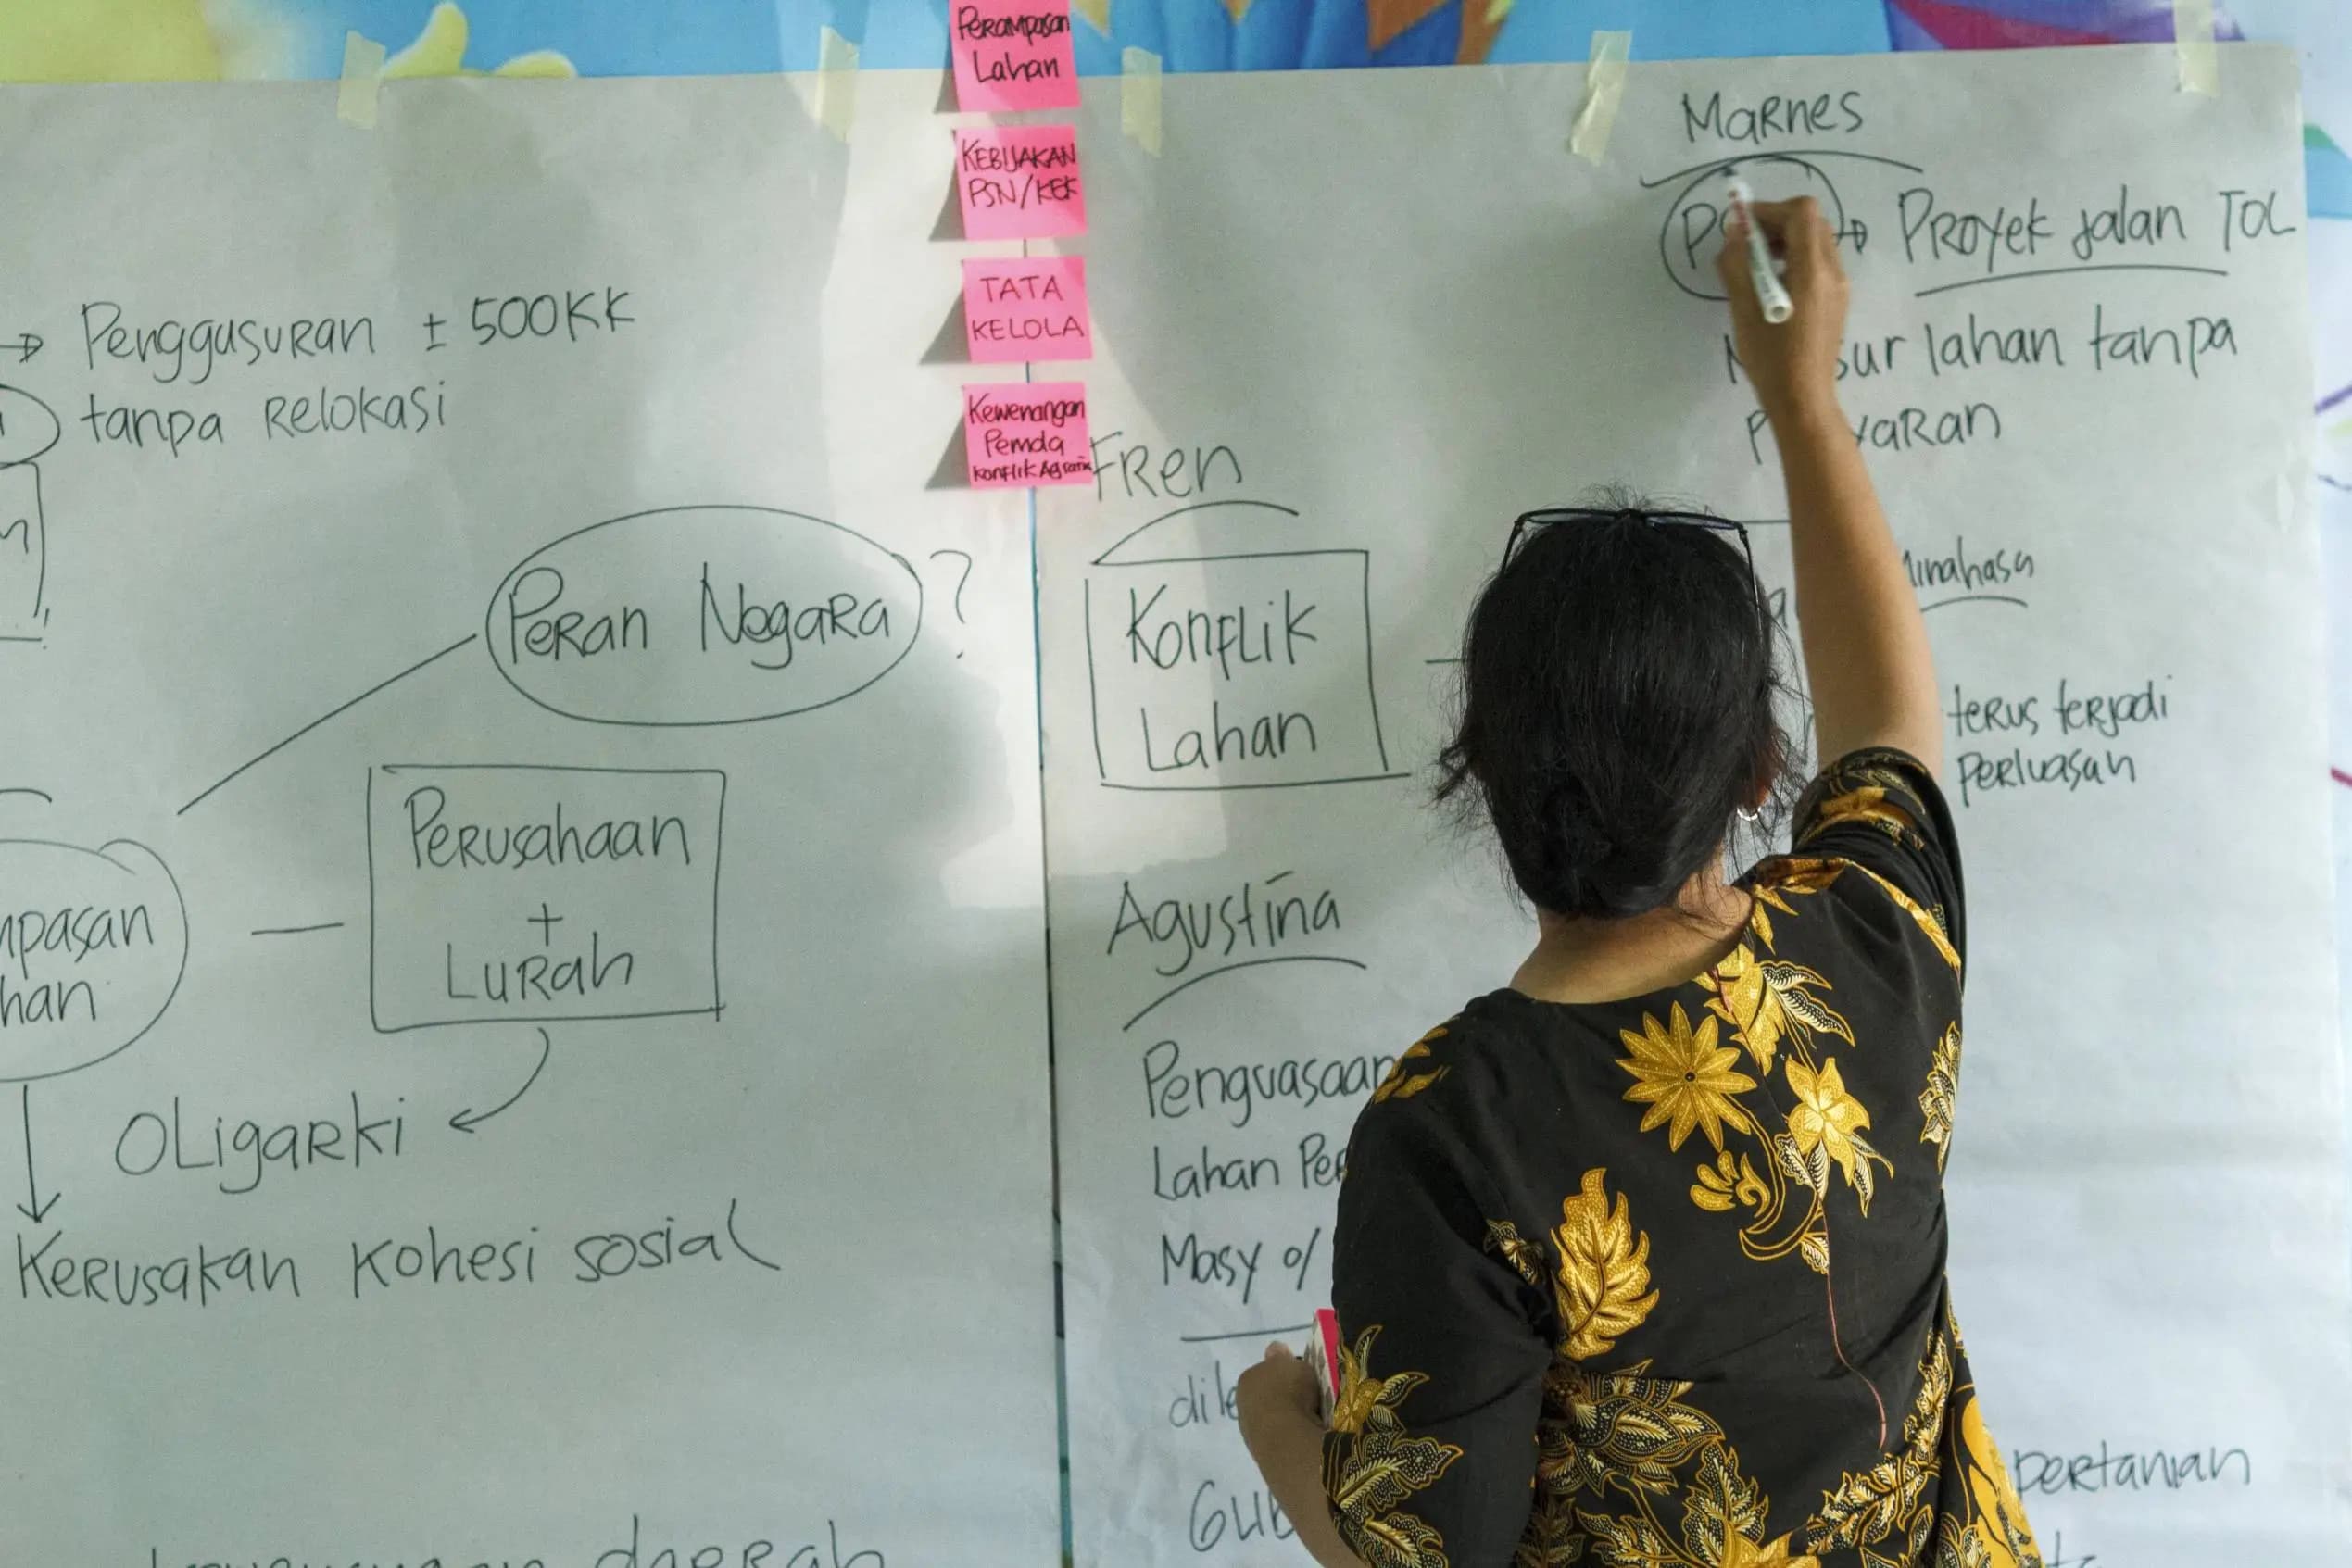 Perampasan
Lahan
KEBIJAKAN
PSN/KEK
TATA
KELOLA
Kewenangan
Pemda
Konflik Agraria
Penggusuran ± 500KK
tanpa Relokasi
Peran Negara ?
Perusahaan
+
Lurah
Oligarki
Kerusakan Kohesi sosial
daerah
Marnes
Proyek jalan TOL
lahan tanpa
Fren
Konflik
Lahan
Minahasa
terus terjadi
perluasan
Agustina
Penguasaan
Lahan
Masy o/
pertanian